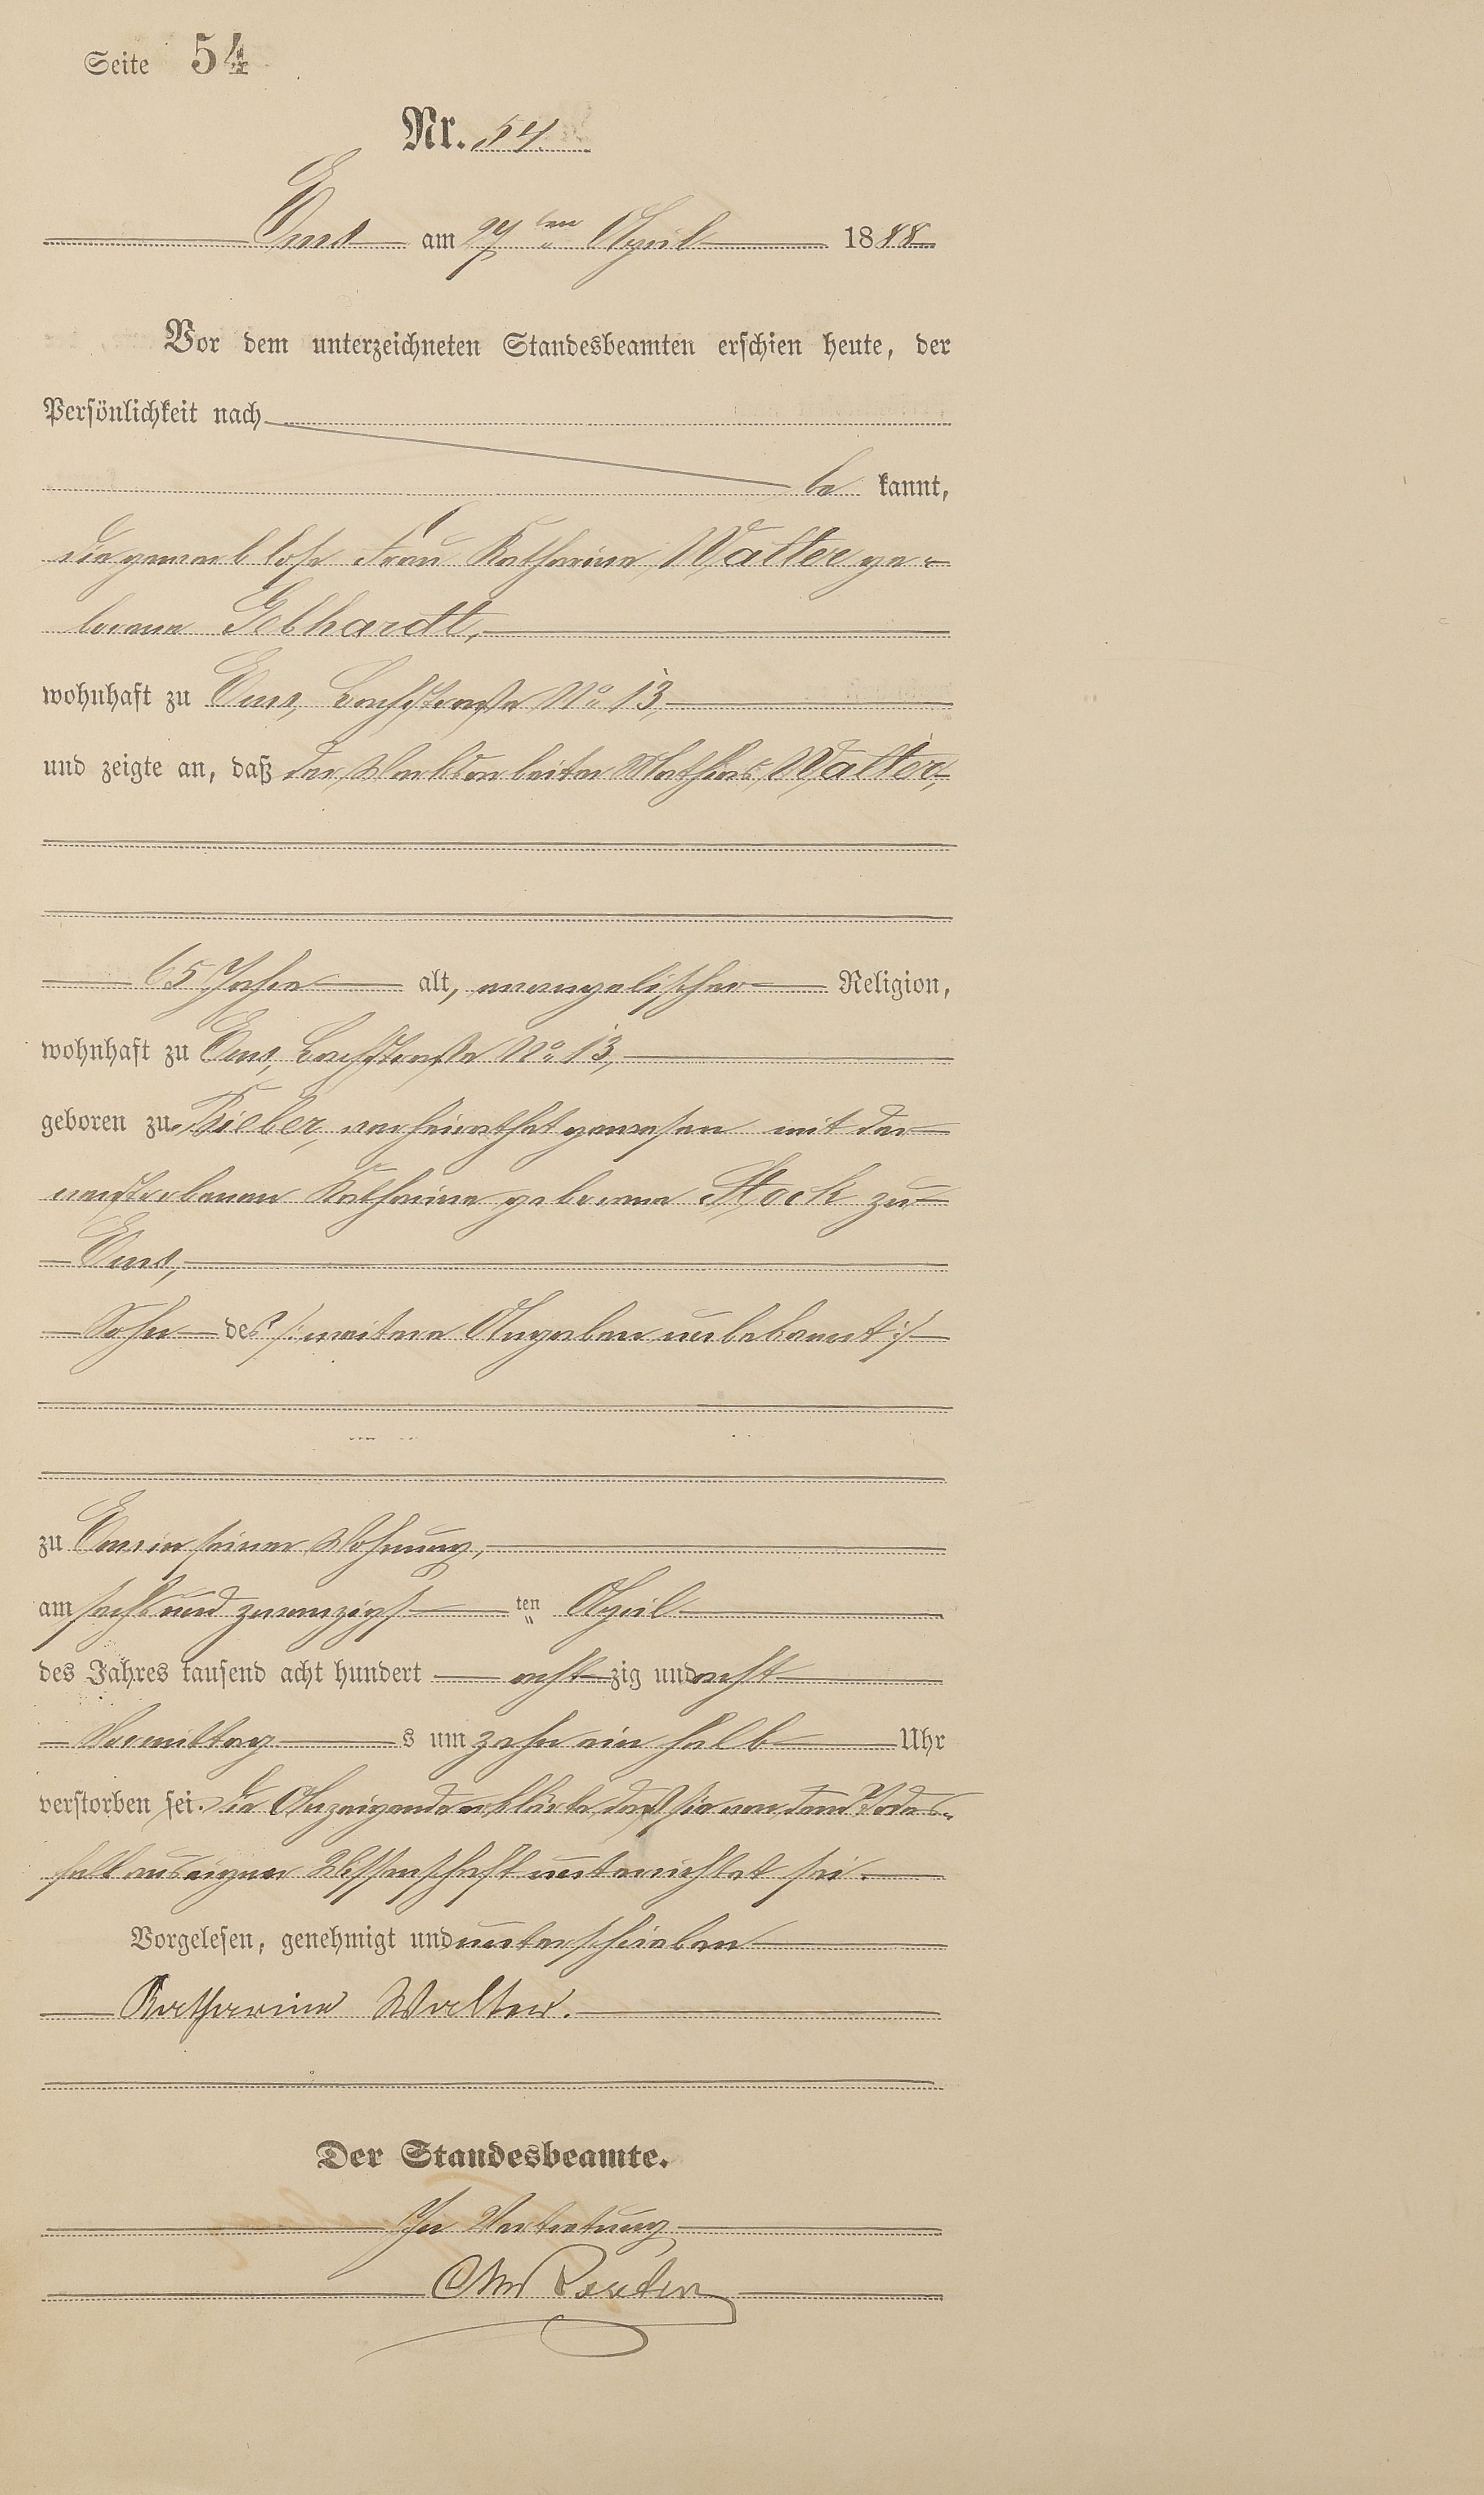 Seite 54
Nr. 54
Ems am 27ten April 1888
Vor dem unterzeichneten Standesbeamten erschien heute, der
Persönlichkeit nach
be kannt,
die gewerblose Frau Katharina Walter ge-
borene Gebhardt,
wohnhaft zu Ems, Bachstraße No 13,
und zeigte an, daß der Werksarbeiter Mathias Walter,
65 Jahre alt, evangelischer Religion,
wohnhaft zu Ems, Bachstraße No 13,
geboren zu Bieber, verheirathet gewesen mit der
verstorbenen Katharina geborene Stock zu
Ems,
Sohn des /: weitere Angaben unbekannt :/
zu Ems in seiner Wohnung,
am sechs und zwanzigsten April
des Jahres tausend acht hundert achtzig und acht
Vormittags um zehn ein halb Uhr
verstorben sei. Die Anzeigende erklärte, daß sie von dem Todes-
fall aus eigner Wissenschaft unterrichtet sei.
Vorgelesen, genehmigt und unterschrieben
Katharina Walter.
Der Standesbeamte.
In Vertretung